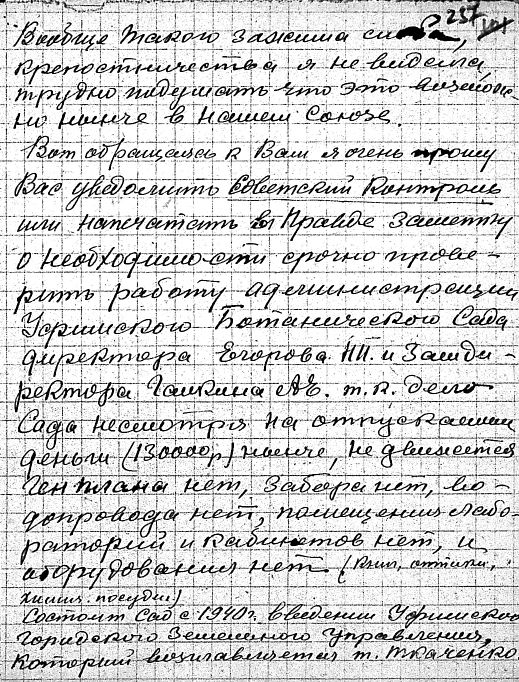 257
Вообще такого зажима слова,
крепостничества я не видела,
трудно подумать что это возмож-
но нынче в нашем Союзе.
Вот обращаясь к Вам я очень прошу
Вас уведомить Советский Контроль
или напечатать в Правде заметку
о необходимости срочно прове-
рить работу администрации
Уфимского Ботанического Сада
директора Егорова НП. и Замди-
ректора Галкина АЕ. т.к. дело
Сада несмотря на отпускаемые
деньги (130000р) нынче, не движется
Ген плана нет, забора нет, во-
допровода нет, помещения лабо-
раторий и кабинетов нет, и
оборудования нет (книг, оптики,
химич. посуды)
Состоит Сад с 1940г. введении Уфимского
Городского Земельного Управления,
который возглавляется т. Ткаченко